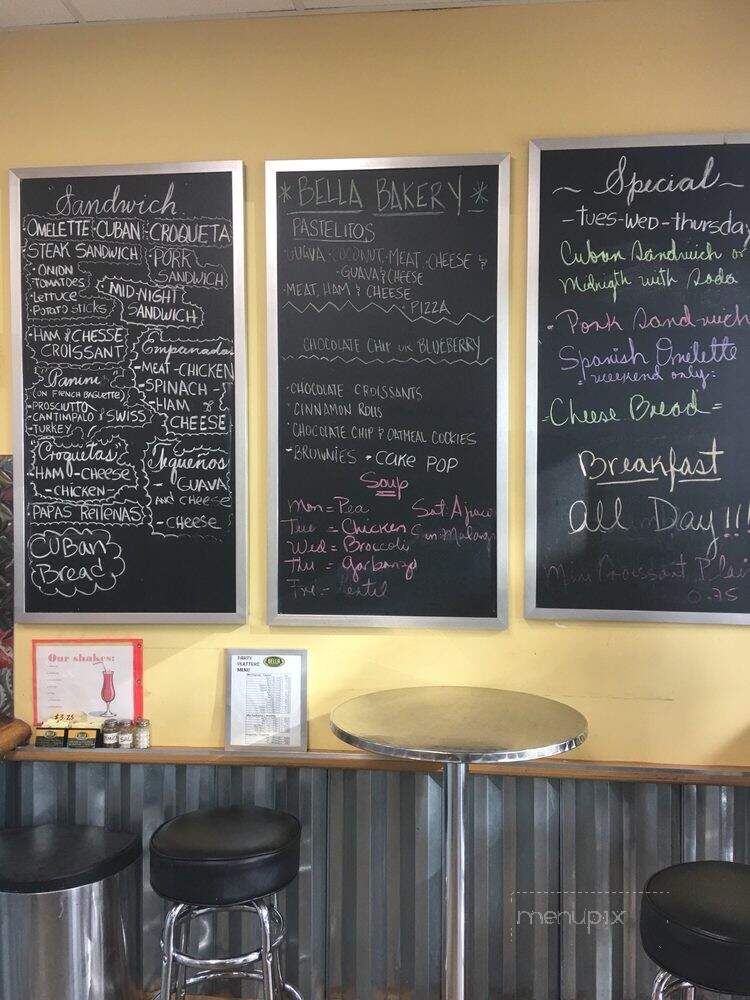 Sandwich
OMELETTE CUBAN CROQUETA
STEAK SANDWICH
- ONION
TOMATOES
- LETTUCE
- POTATO STICKS
PORK
SANDWICH
MID-NIGHT
SANDWICH
- HAM & CHESSE
CROISSANT
Panini
(ON FRENCH BAGUETTE)
- PROSCIUTTO
- CANTIMPALO & SWISS
- TURKEY
Empanadas
- MEAT - CHICKEN
- SPINACH -
- HAM &
CHEESE
Croquetas
- HAM - CHEESE
- CHICKEN -
- PAPAS RELLENAS
Tequeños
- GUAVA
AND CHEESE
- CHEESE
CUBAN
BREAD
* BELLA BAKERY *
PASTELITOS
GUAVA - COCONUT - MEAT - CHEESE &
- GUAVA & CHEESE
- MEAT, HAM & CHEESE
PIZZA
CHOCOLATE CHIP or BLUEBERRY
- CHOCOLATE CROISSANTS
- CINNAMON ROLLS
- CHOCOLATE CHIP & OATMEAL COOKIES
- BROWNIES - CAKE POP
Soup
Mon = Pea Sat. Ajiaco
Tue = Chicken Sun
Wed = Broccoli
Thu = Garbanzo
Fri = Lentil
~ Special ~
- Tues - Wed - thursday
Cuban Sandwich or
Midnigth with Soda
- Pork Sandwich
Spanish Omelette
weekend only:
- Cheese Bread =
Breakfast
All Day!!!
Mini Croissant Plain
0.75
Our shakes:
$3.25
PARTY
PLATTERS
MENU
BELLA
menupix